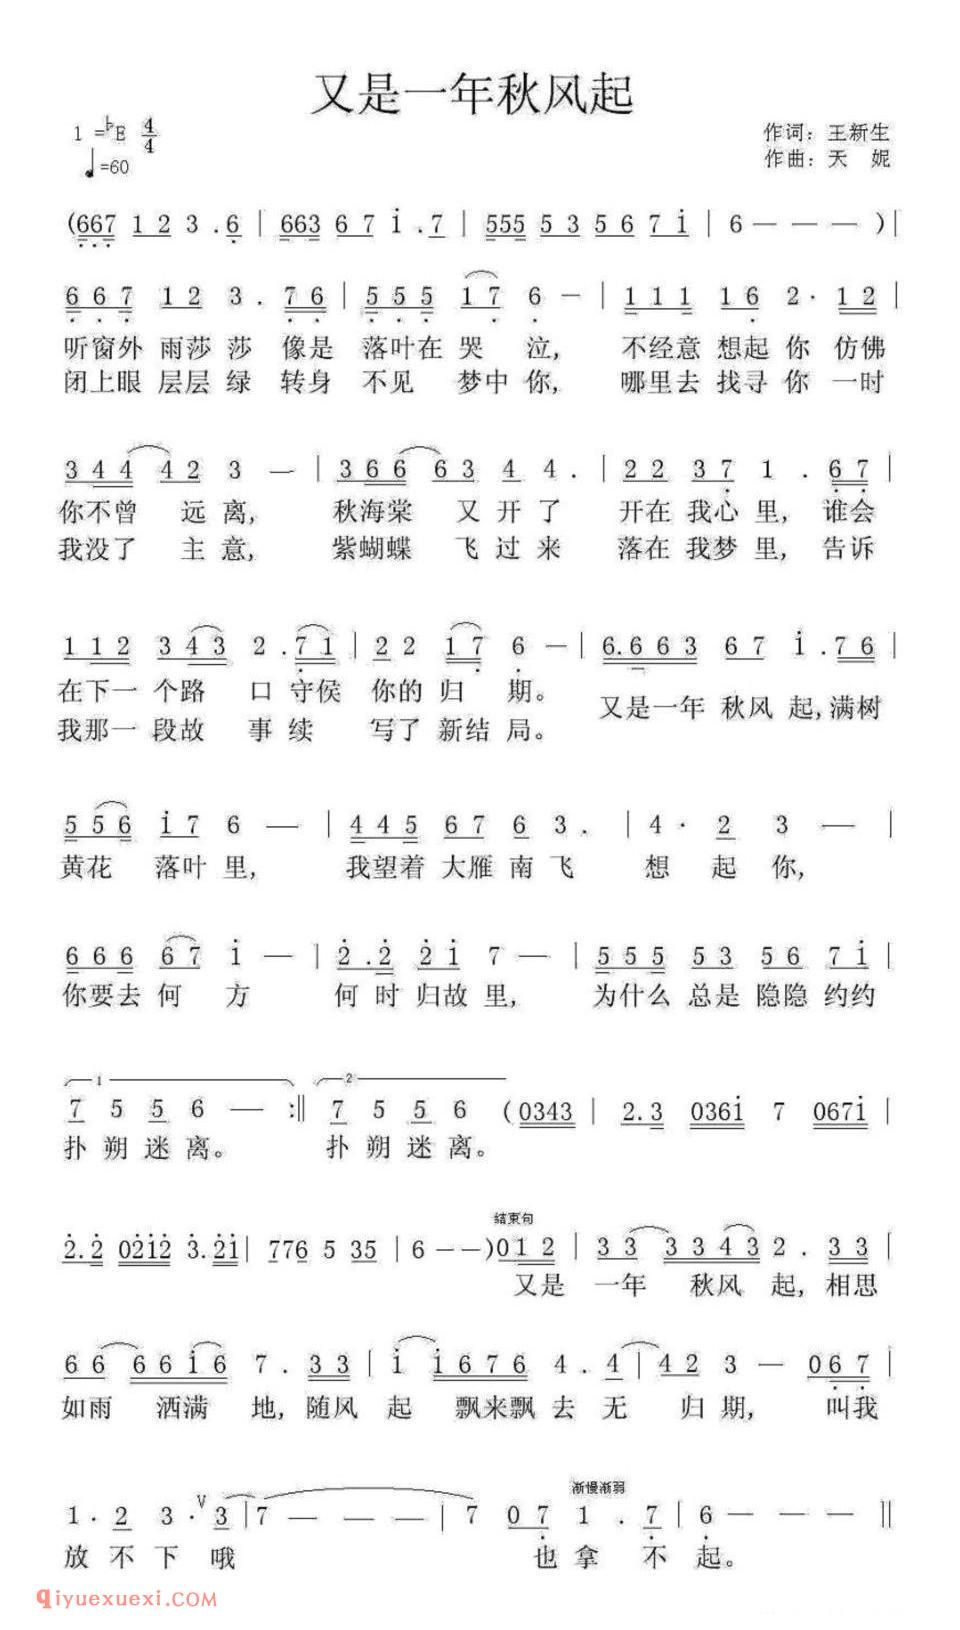 又是一年秋风起
1=♭E 4/4
作词：王新生
♩=60
作曲：天 妮
(667 1 2 3 . 6 | 663 6 7 i . 7 | 555 5 3 5 6 7 i | 6 — — — )|
6 6 7 1 2 3 . 7 6 | 5 5 5 1 7 6 — | 1 1 1 1 6 2 · 1 2 |
听窗外 雨莎莎 像是 落叶在 哭 泣, 不经意 想起你 仿佛
闭上眼 层层绿 转身 不见 梦中你, 哪里去 找寻你 一时
3 4 4 4 2 3 — | 3 6 6 6 3 4 4 . | 2 2 3 7 1 . 6 7 |
你不曾 远离, 秋海棠 又开了 开在我心里, 谁会
我没了 主意, 紫蝴蝶 飞过来 落在我梦里, 告诉
1 1 2 3 4 3 2 . 7 1 | 2 2 1 7 6 — | 6.6 6 3 6 7 i . 7 6 |
在下一 个路 口守侯 你的归 期。
又是一年 秋风 起,满树
我那一段故 事续 写了新结局。
5 5 6 i 7 6 — | 4 4 5 6 7 6 3 . | 4 · 2 3 — |
黄花 落叶里, 我望着 大雁南飞 想 起 你,
6 6 6 6 7 i — | 2 . 2 2 i 7 — | 5 5 5 5 3 5 6 7 i |
你要去 何 方 何 时归故里, 为什么 总是 隐隐 约约
1 2
7 5 5 6 — :‖ 7 5 5 6 (0343 | 2.3 036i 7 067i |
扑 朔 迷 离。 扑 朔 迷 离。
结束句
2.2 02i2 3.2i | 776 5 35 | 6 — — )0 1 2 | 3 3 3 3 4 3 2 . 3 3 |
又是 一年 秋风 起, 相思
6 6 6 6 i 6 7 . 3 3 | i i 6 7 6 4 . 4 | 4 2 3 — 0 6 7 |
如雨 洒满 地, 随风 起 飘来飘 去 无 归 期, 叫我
渐慢渐弱
1 · 2 3 · V 3 | 7 — — — | 7 0 7 1 . 7 | 6 — — — ‖
放 不 下 哦 也 拿 不 起。
qiyuexuexi.COM